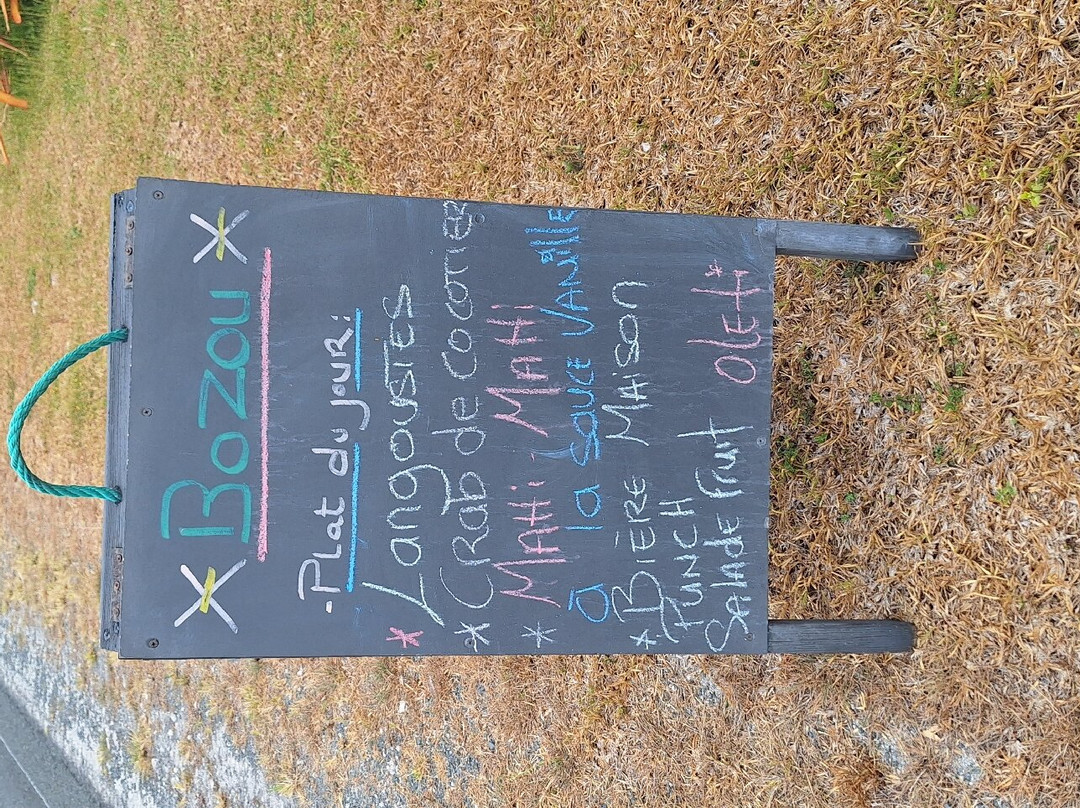 * Bozou *
- Plat du jour:
* Langoustes
* Crab de Cocotier
* MAHi MAHi
à la Sauce VANille
* Bière Maison
PUNCH
Salade fruit